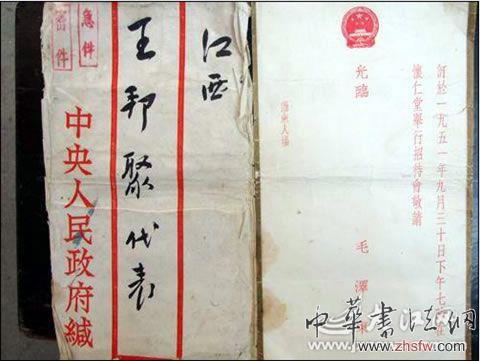 江西
王邦聚代表
急件
密件
中央人民政府緘
訂於一九五一年九月三十日下午七時在
懷仁堂舉行招待會敬請
光臨
毛澤
中華書法網
www.zhsfw.com